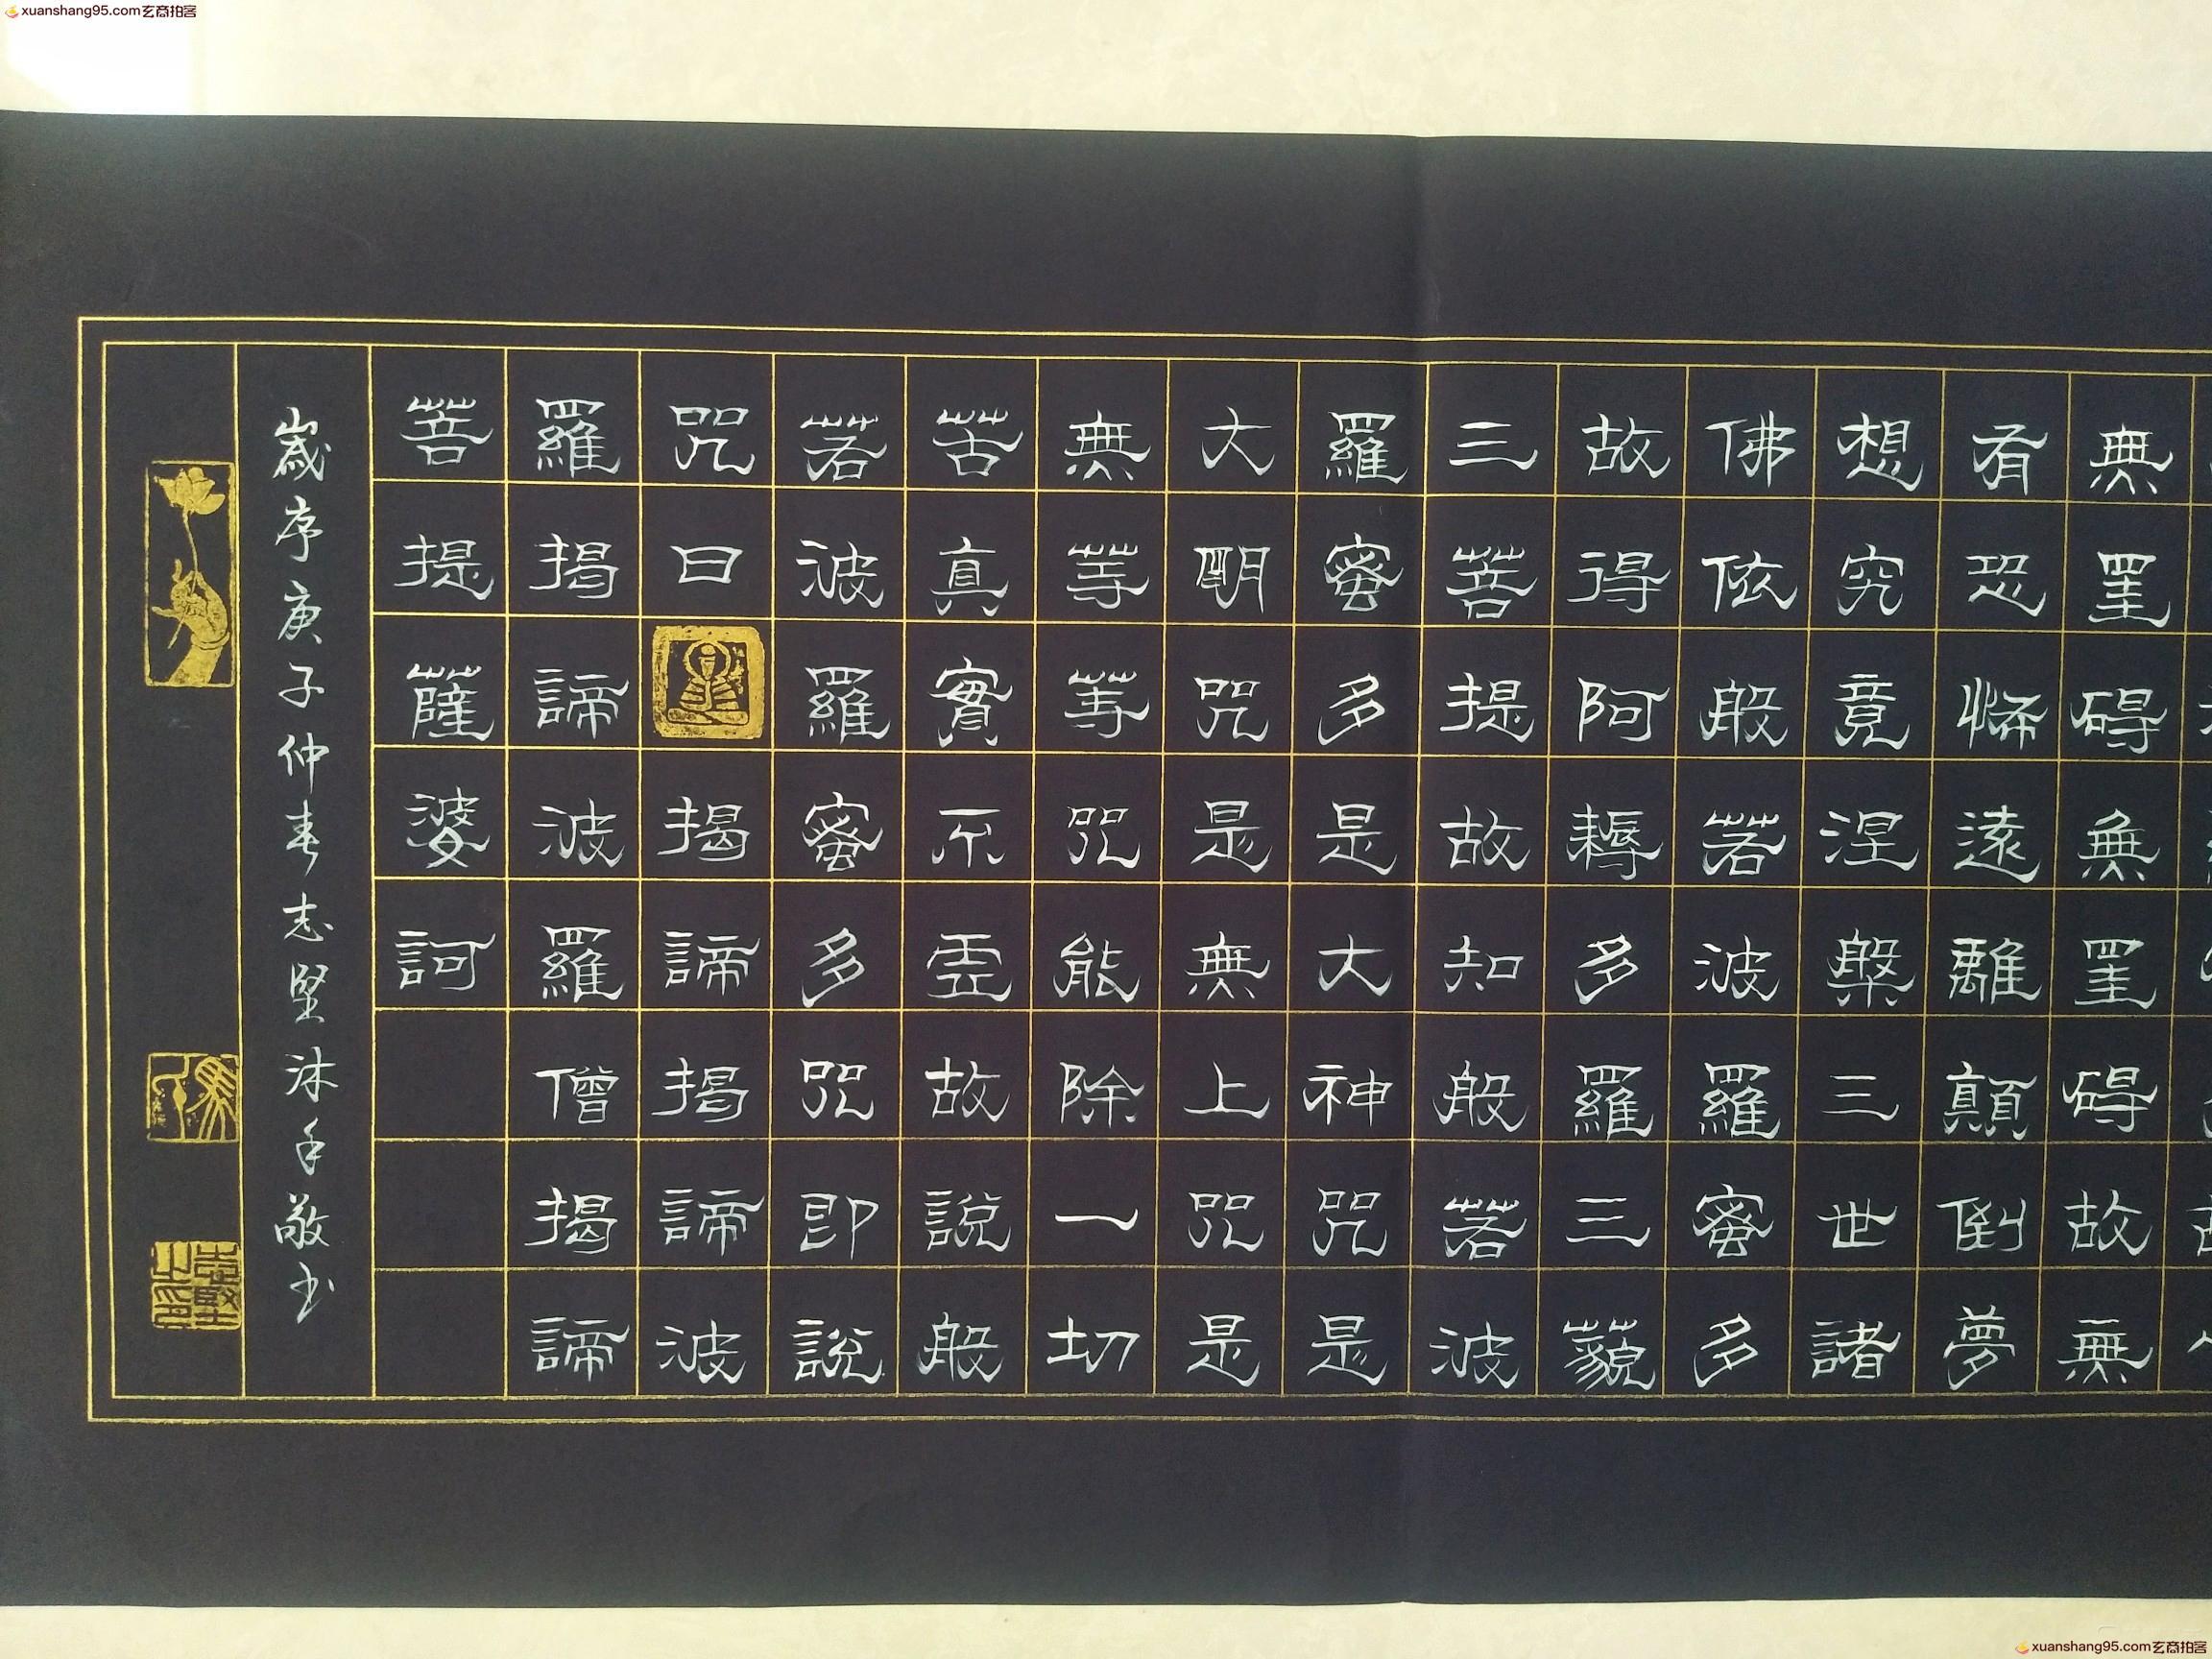 xuanshang95.com玄商拍客
無罣碍無罣碍故無
有恐怖遠離顛倒夢
想究竟涅槃三世諸
佛依般若波羅蜜多
故得阿耨多羅三藐
三菩提故知般若波
羅蜜多是大神咒是
大明咒是無上咒是
無等等咒能除一切
苦真實不虛故說般
若波羅蜜多咒即說
咒曰揭諦揭諦波
羅揭諦波羅僧揭諦
菩提薩婆訶
歲序庚子仲春志堅沐手敬書
志堅之印
xuanshang95.com玄商拍客